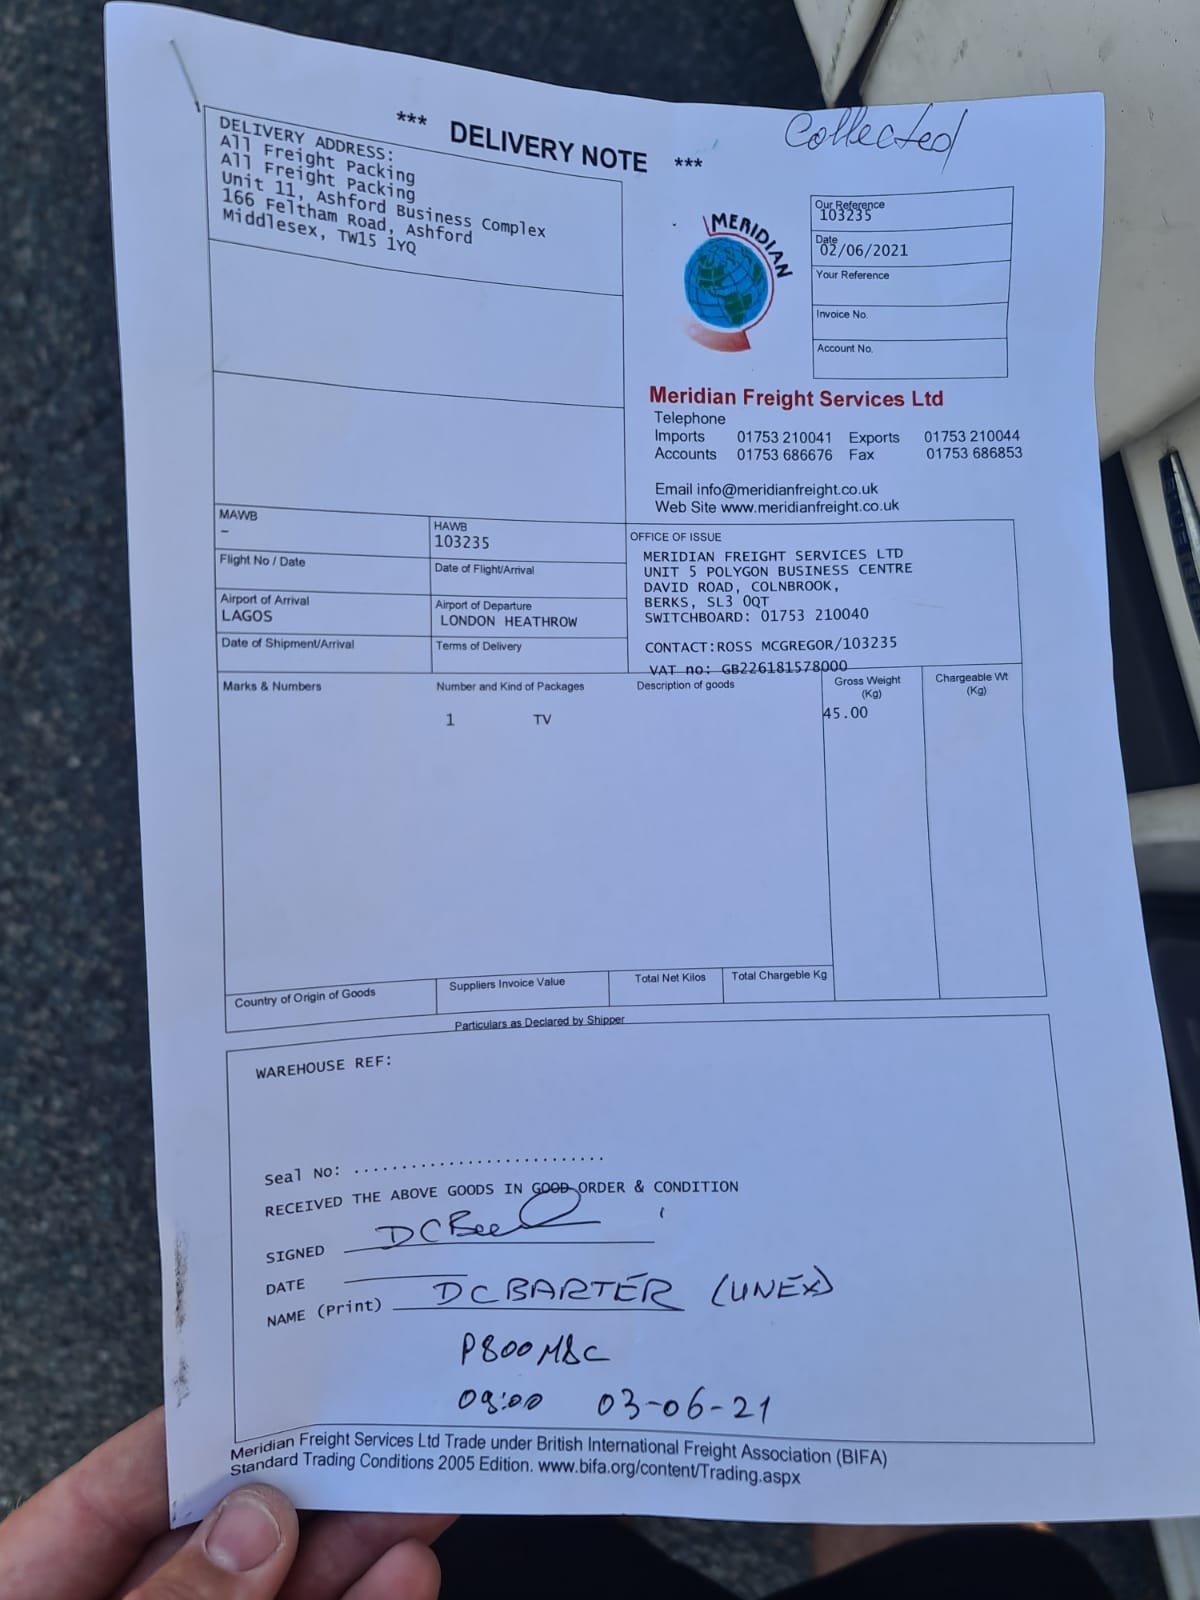 *** DELIVERY NOTE ***
Collected
DELIVERY ADDRESS:
All Freight Packing
All Freight Packing
Unit 11, Ashford Business Complex
166 Feltham Road, Ashford
Middlesex, TW15 1YQ
MERIDIAN
Our Reference
103235
Date
02/06/2021
Your Reference
Invoice No.
Account No.
Meridian Freight Services Ltd
Telephone
Imports 01753 210041 Exports 01753 210044
Accounts 01753 686676 Fax 01753 686853
Email info@meridianfreight.co.uk
Web Site www.meridianfreight.co.uk
MAWB
–
HAWB
103235
Flight No / Date
Date of Flight/Arrival
Airport of Arrival
LAGOS
Airport of Departure
LONDON HEATHROW
Date of Shipment/Arrival
Terms of Delivery
OFFICE OF ISSUE
MERIDIAN FREIGHT SERVICES LTD
UNIT 5 POLYGON BUSINESS CENTRE
DAVID ROAD, COLNBROOK,
BERKS, SL3 0QT
SWITCHBOARD: 01753 210040
CONTACT:ROSS MCGREGOR/103235
VAT no: GB226181578000
Marks & Numbers
Number and Kind of Packages
Description of goods
Gross Weight
(Kg)
Chargeable Wt
(Kg)
1 TV
45.00
Country of Origin of Goods
Suppliers Invoice Value
Total Net Kilos
Total Chargeble Kg
Particulars as Declared by Shipper
WAREHOUSE REF:
Seal No: ...........................
RECEIVED THE ABOVE GOODS IN GOOD ORDER & CONDITION
SIGNED
DATE
NAME (Print) DC BARTER (UNEX)
P800 MBC
03-06-21
Meridian Freight Services Ltd Trade under British International Freight Association (BIFA)
Standard Trading Conditions 2005 Edition. www.bifa.org/content/Trading.aspx